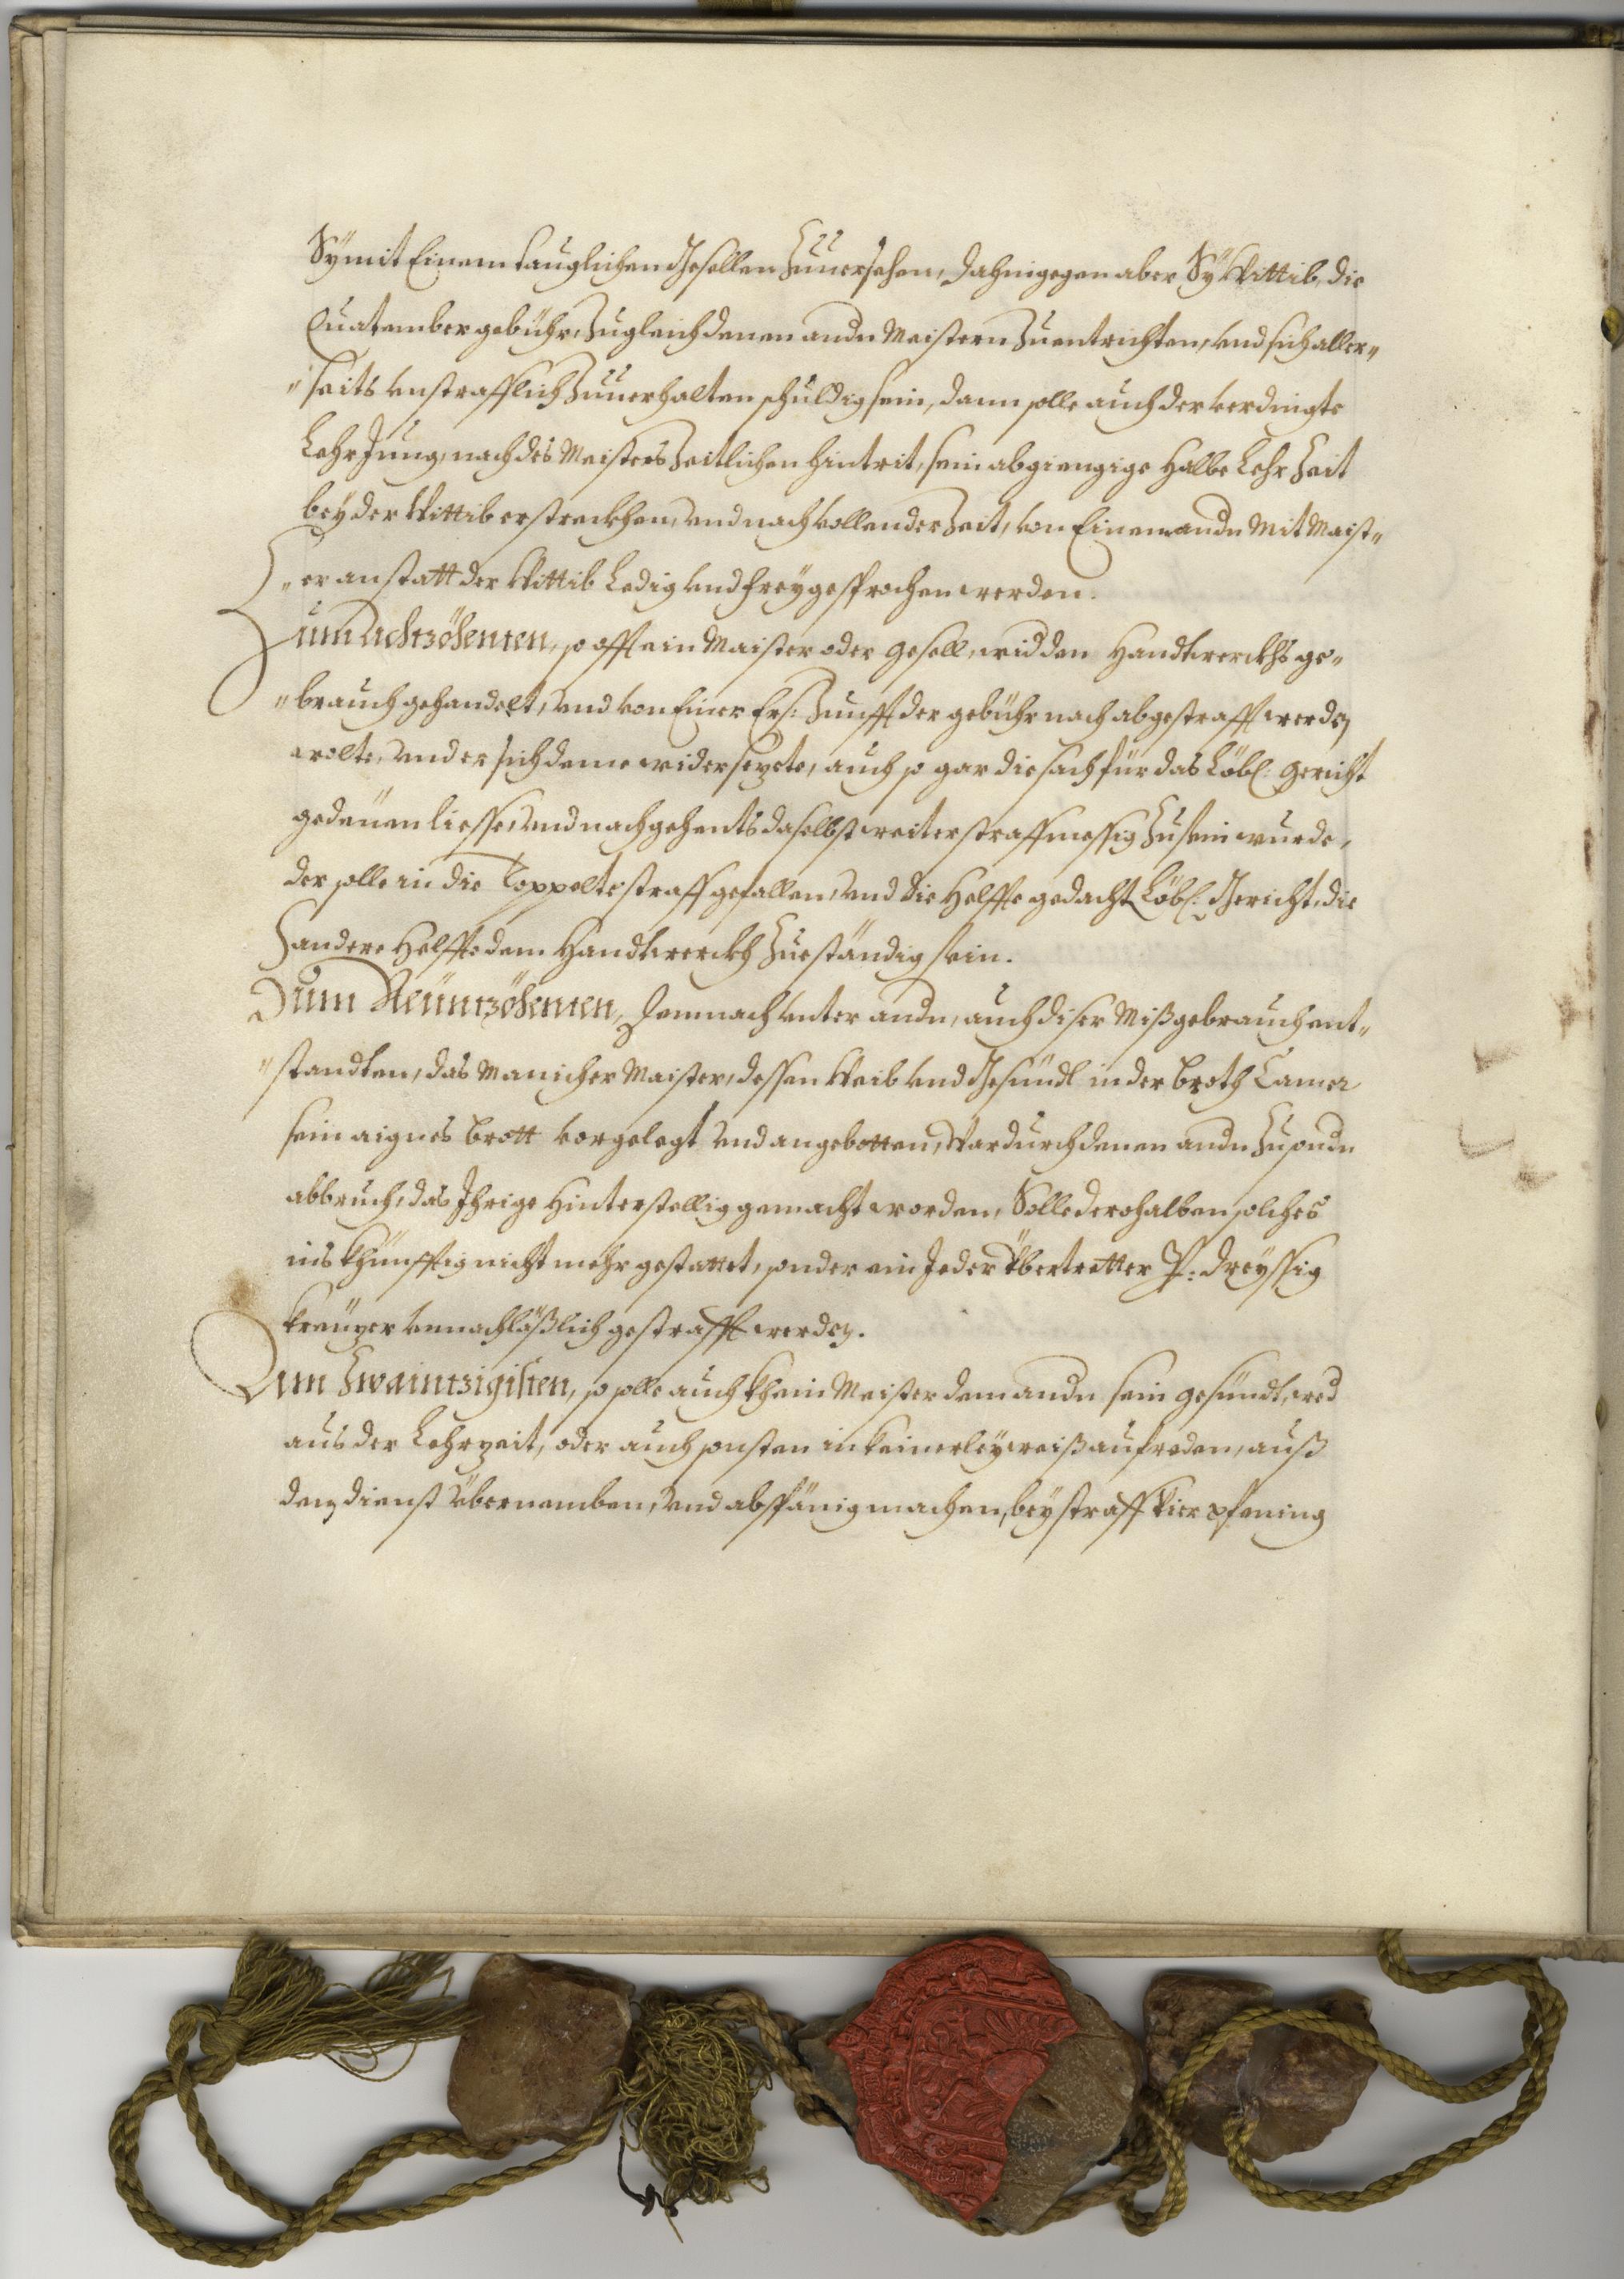 Sÿ mit Einem tauglichen Gesellen Zuuersehen, Dahingegen aber Sÿ Wittib, die
Quatember gebühr, Zugleich denen andn Maistern Zuentrichten, vnd sich aller„
„seits vnstrafflich Zuuerhalten schuldig sein, dann solle auch der verdingte
LehrJung, nach des Maisters Zeitlichen hintrit, sein abgiengige Halbe Lehr Zeit
beÿ der Wittib erstreckhen, vnd nach vollender Zeit, von Einem andn Mit Maist„
„er anstatt der Wittib Ledig vnd freÿ gesprochen werden.
Zum Achtzöhenten, so offt ein Maister oder gesell, wid den Handtwerckhs ge„
„brauch gehandelt, vnd von Einer Ers: Zunfft der gebühr nach abgestrafft werden
wolte, vnd er sich deme widersezete, auch so gar die sach für das Löbl: Gericht
gedeüen liesse, vnd nachgehents daselbst weiter straffmessig Zu sein wurde,
der solle in die Toppelte straff gefallen, vnd die Helffte gedacht Löbl: Gericht, die
andere Helffte dem Handtwerckh Zueständig sein.
Zum Neüntzöhenten, Demnach vnter andn, auch diser Mißgebrauch ent„
„standten, das Manicher Maister, dessen Weib vnd Gesündl in der Broth Camer
sein aignes Brott vorgelegt vnd angebotten, Wardurch denen andn Zu sondn
abbruch, das Ihrige Hinterstellig gemacht worden, Solle derohalben solches
ins khünfftig nicht mehr gestattet, sonder ein Jeder Übertretter P: dreÿssig
kreüzer vnnachläßlich gestrafft werden.
Zum Zwaintzigisten, so solle auch khein Maister dem andn sein gesündt, wed
aus der Lehrzeit, oder auch sonsten in keinerleÿ weiß aufreden, auß
den dienst übernemben, vnd abspänig machen, beÿ straff vier pfening